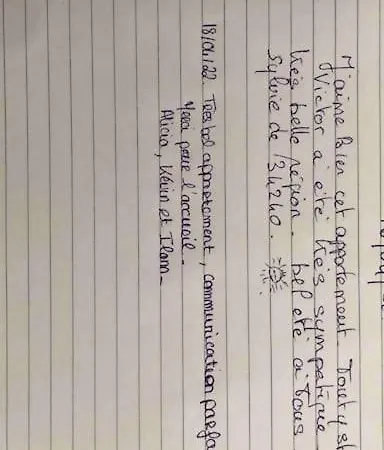 J'aime bien cet appartement. Tout y
Victor a été très sympatique
très belle région - bel été à Tous
Sylvie de 34240.
18/04/22. Très bel appartement, communication
Merci pour l'accueil -
Alicia, Kévin et Ilann -